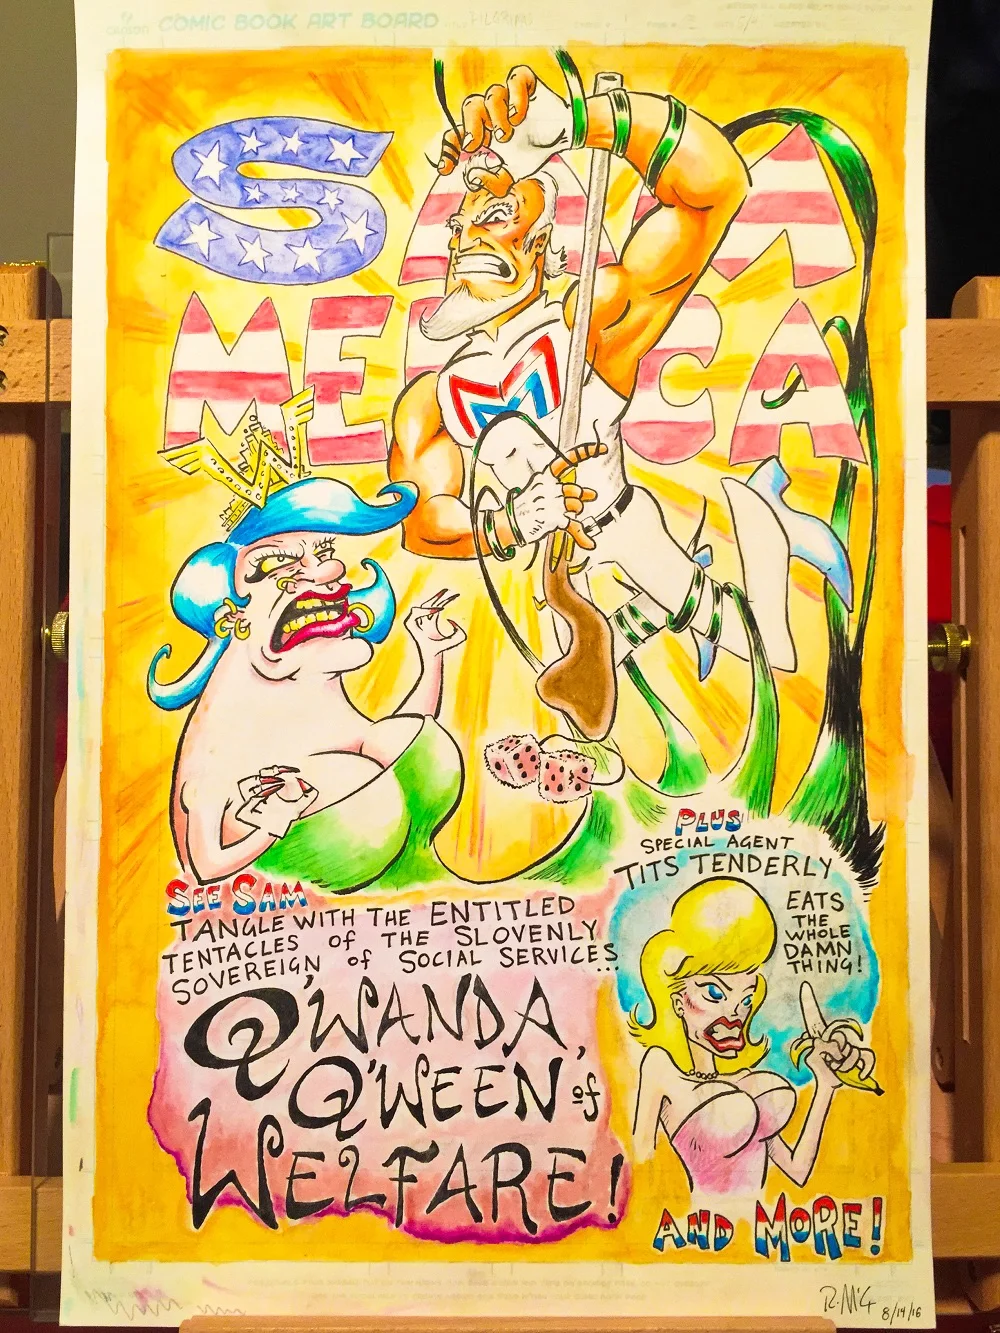 COMIC BOOK ART BOARD
SAM
MERICA
M
W
SEE SAM
TANGLE WITH THE ENTITLED
TENTACLES of THE SLOVENLY
SOVEREIGN of SOCIAL SERVICES...
Q'WANDA,
Q'WEEN of
WELFARE!
PLUS
SPECIAL AGENT
TITS TENDERLY
EATS
THE
WHOLE
DAMN
THING!
AND MORE!
R. McG 8/14/16